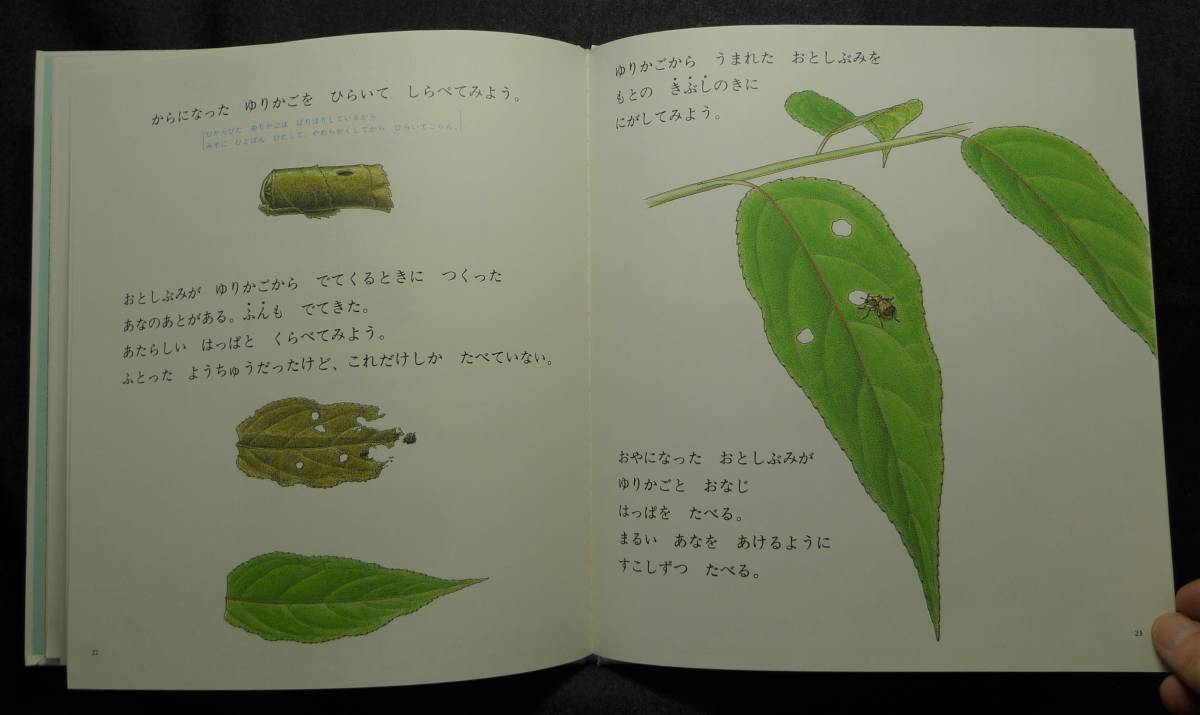 からになった　ゆりかごを　ひらいて　しらべてみよう。
ひからびた　ゆりかごは　ぱりぱりしているから
みずに　ひとばん　ひたして、やわらかくしてから　ひらいてごらん。
おとしぶみが　ゆりかごから　でてくるときに　つくった
あなのあとがある。ふんも　でてきた。
あたらしい　はっぱと　くらべてみよう。
ふとった　ようちゅうだったけど、これだけしか　たべていない。
22
ゆりかごから　うまれた　おとしぶみを
もとの　きぶしのきに
にがしてみよう。
おやになった　おとしぶみが
ゆりかごと　おなじ
はっぱを　たべる。
まるい　あなを　あけるように
すこしずつ　たべる。
23